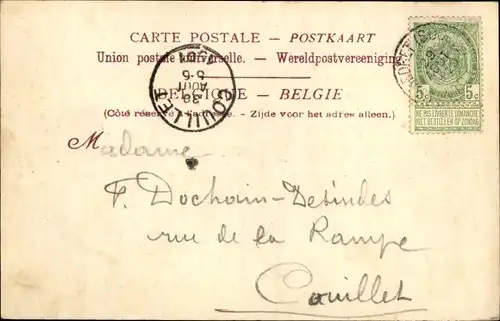 CARTE POSTALE – POSTKAART
Union postale universelle. – Wereldpostvereeniging
BELGIQUE – BELGIE
(Côté réservé à l'adresse. – Zijde voor het adres alleen.)
COUILLET
30
AOUT
5-6
1901
5c 5c
NE PAS LIVRER LE DIMANCHE
NIET BESTELLEN OP ZONDAG
Madame
F. Dochain-Desindes
rue de la Rampe
Couillet